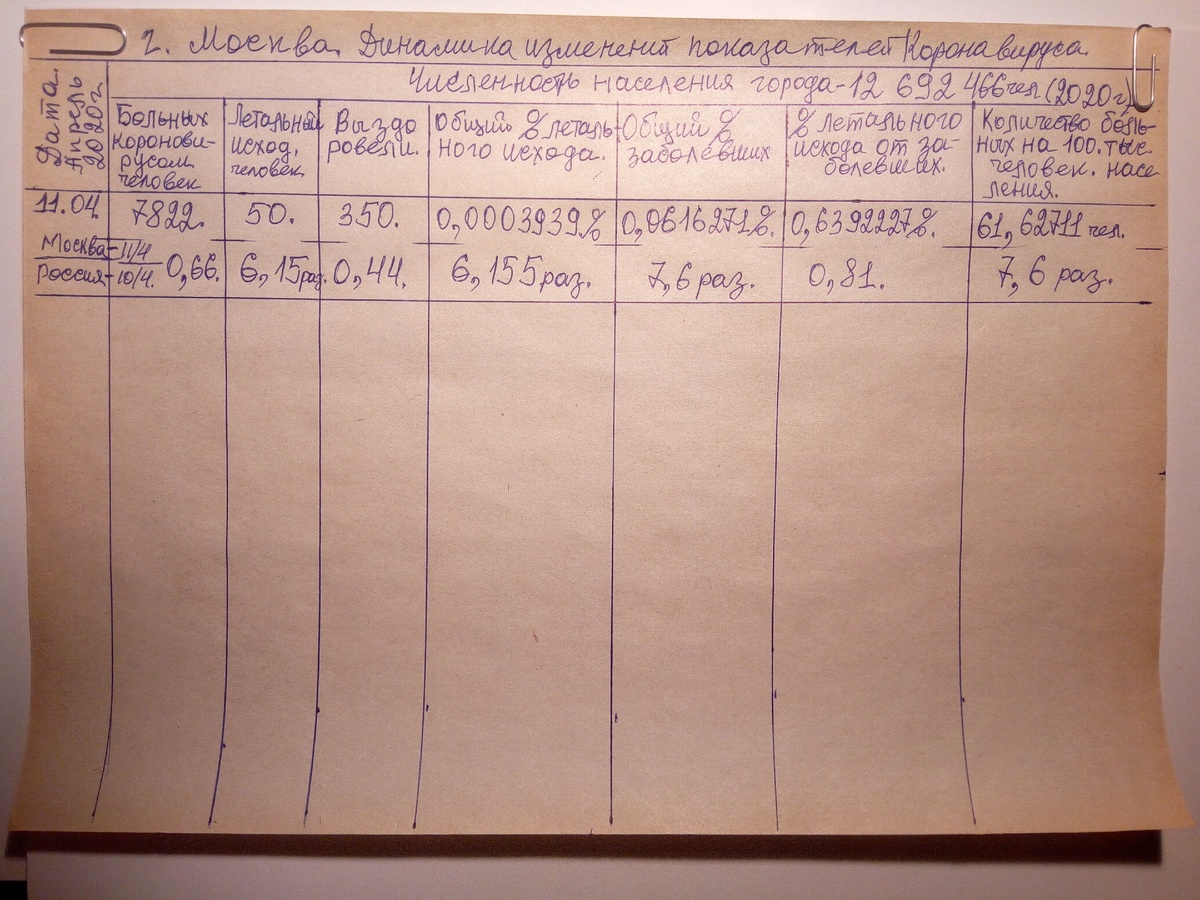 г. Москва. Динамика изменений показателей Коронавируса.
Численность населения города-12 692 466 чел. (2020г.)
Дата.
Апрель
2020г.
Больных
коронови-
русом
человек
Летальный
исход,
человек
Выздо
ровели.
Общий % леталь-
ного исхода.
Общий %
заболевших
% летального
исхода от за-
болевших.
Количество боль-
ных на 100.тыс
человек. насе
ления.
11.04. 7822. 50. 350. 0,0003939.% 0,0616271%. 0,6392227%. 61,62711 чел.
Москва-11/4
Россия-10/4. 0,66. 6,15раз. 0,44. 6,155раз. 7,6 раз. 0,81. 7,6 раз.